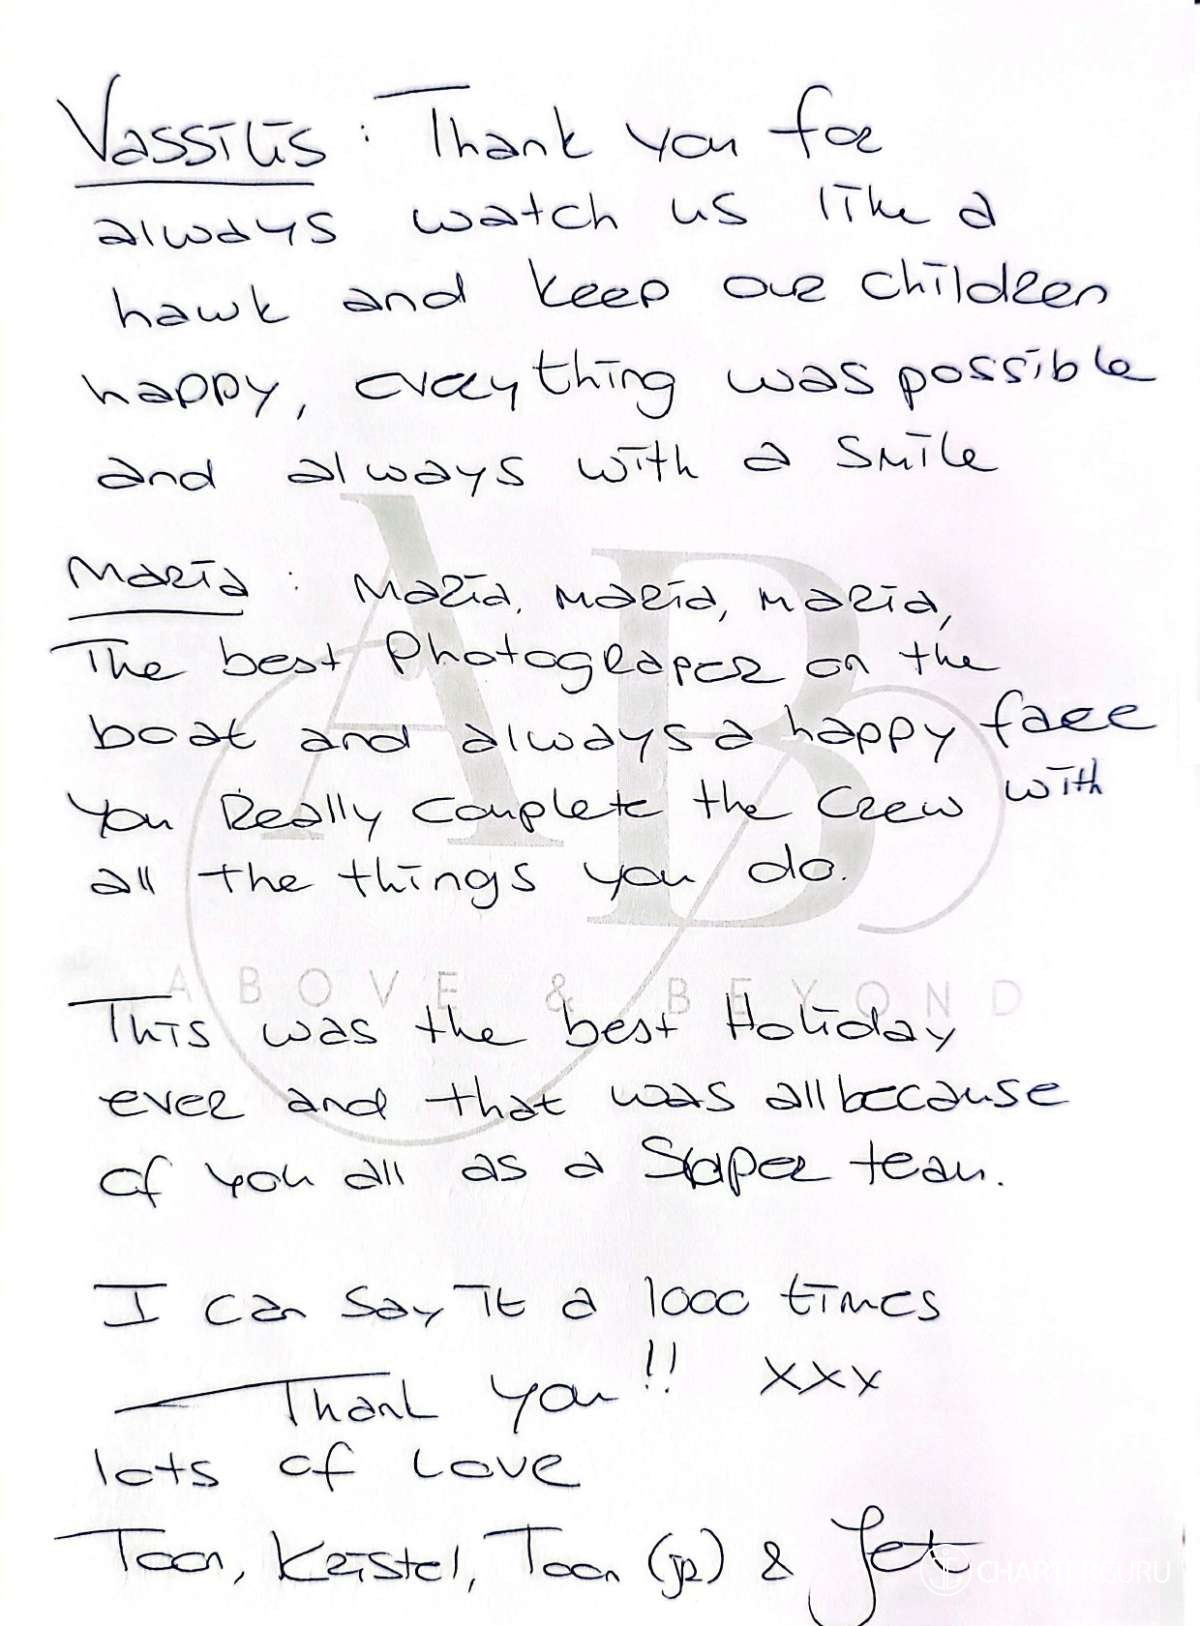 Vassilis : Thank you for
always watch us like a
hawk and keep our children
happy, everything was possible
and always with a smile
Maria : Maria, Maria, Maria,
The best Photograper on the
boat and always a happy face
You Really complete the Crew with
all the things you do.
ABOVE & BEYOND
This was the best Holiday
ever and that was all because
of you all as a Super team.
I can say it a 1000 times
Thank you!! xxx
lots of love
Toon, Kristel, Toon (jr) & Jet
CHARTERGURU